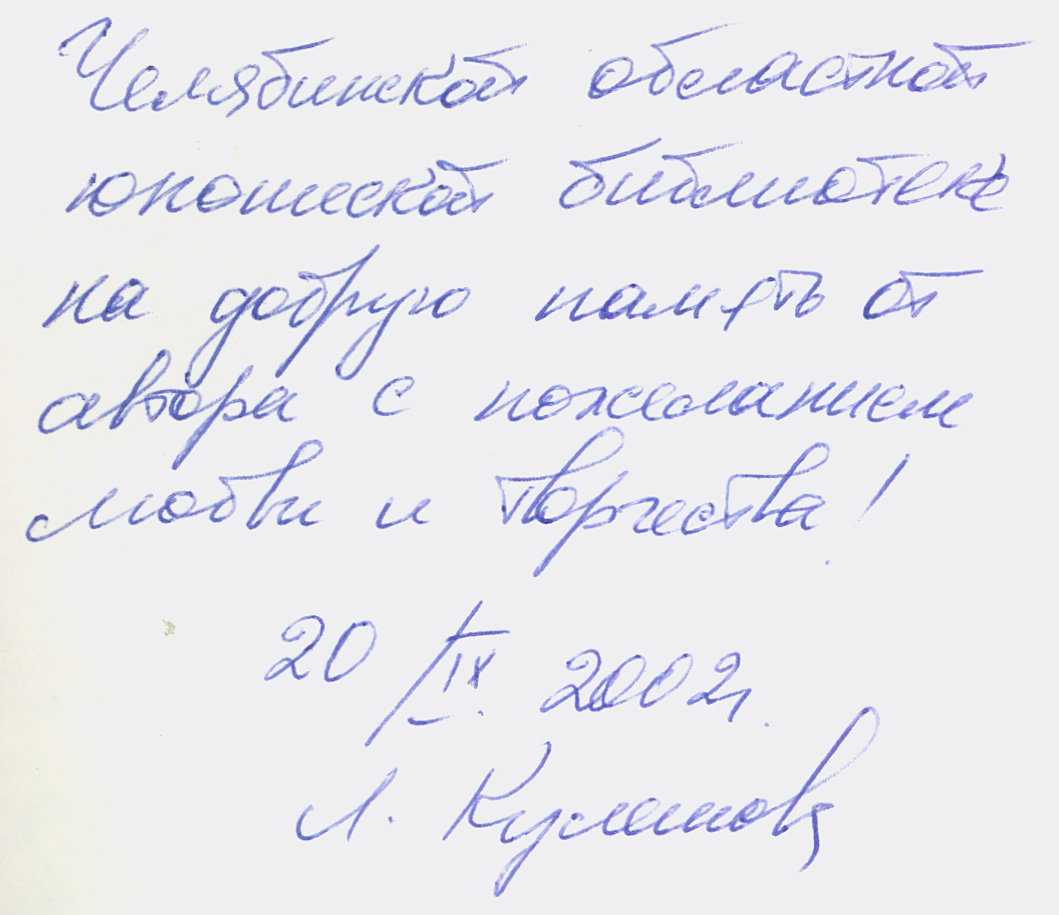 Челябинской областной
юношеской библиотеке
на добрую память от
автора с пожеланием
любви и творчества!
20/IX. 2002г.
Л.